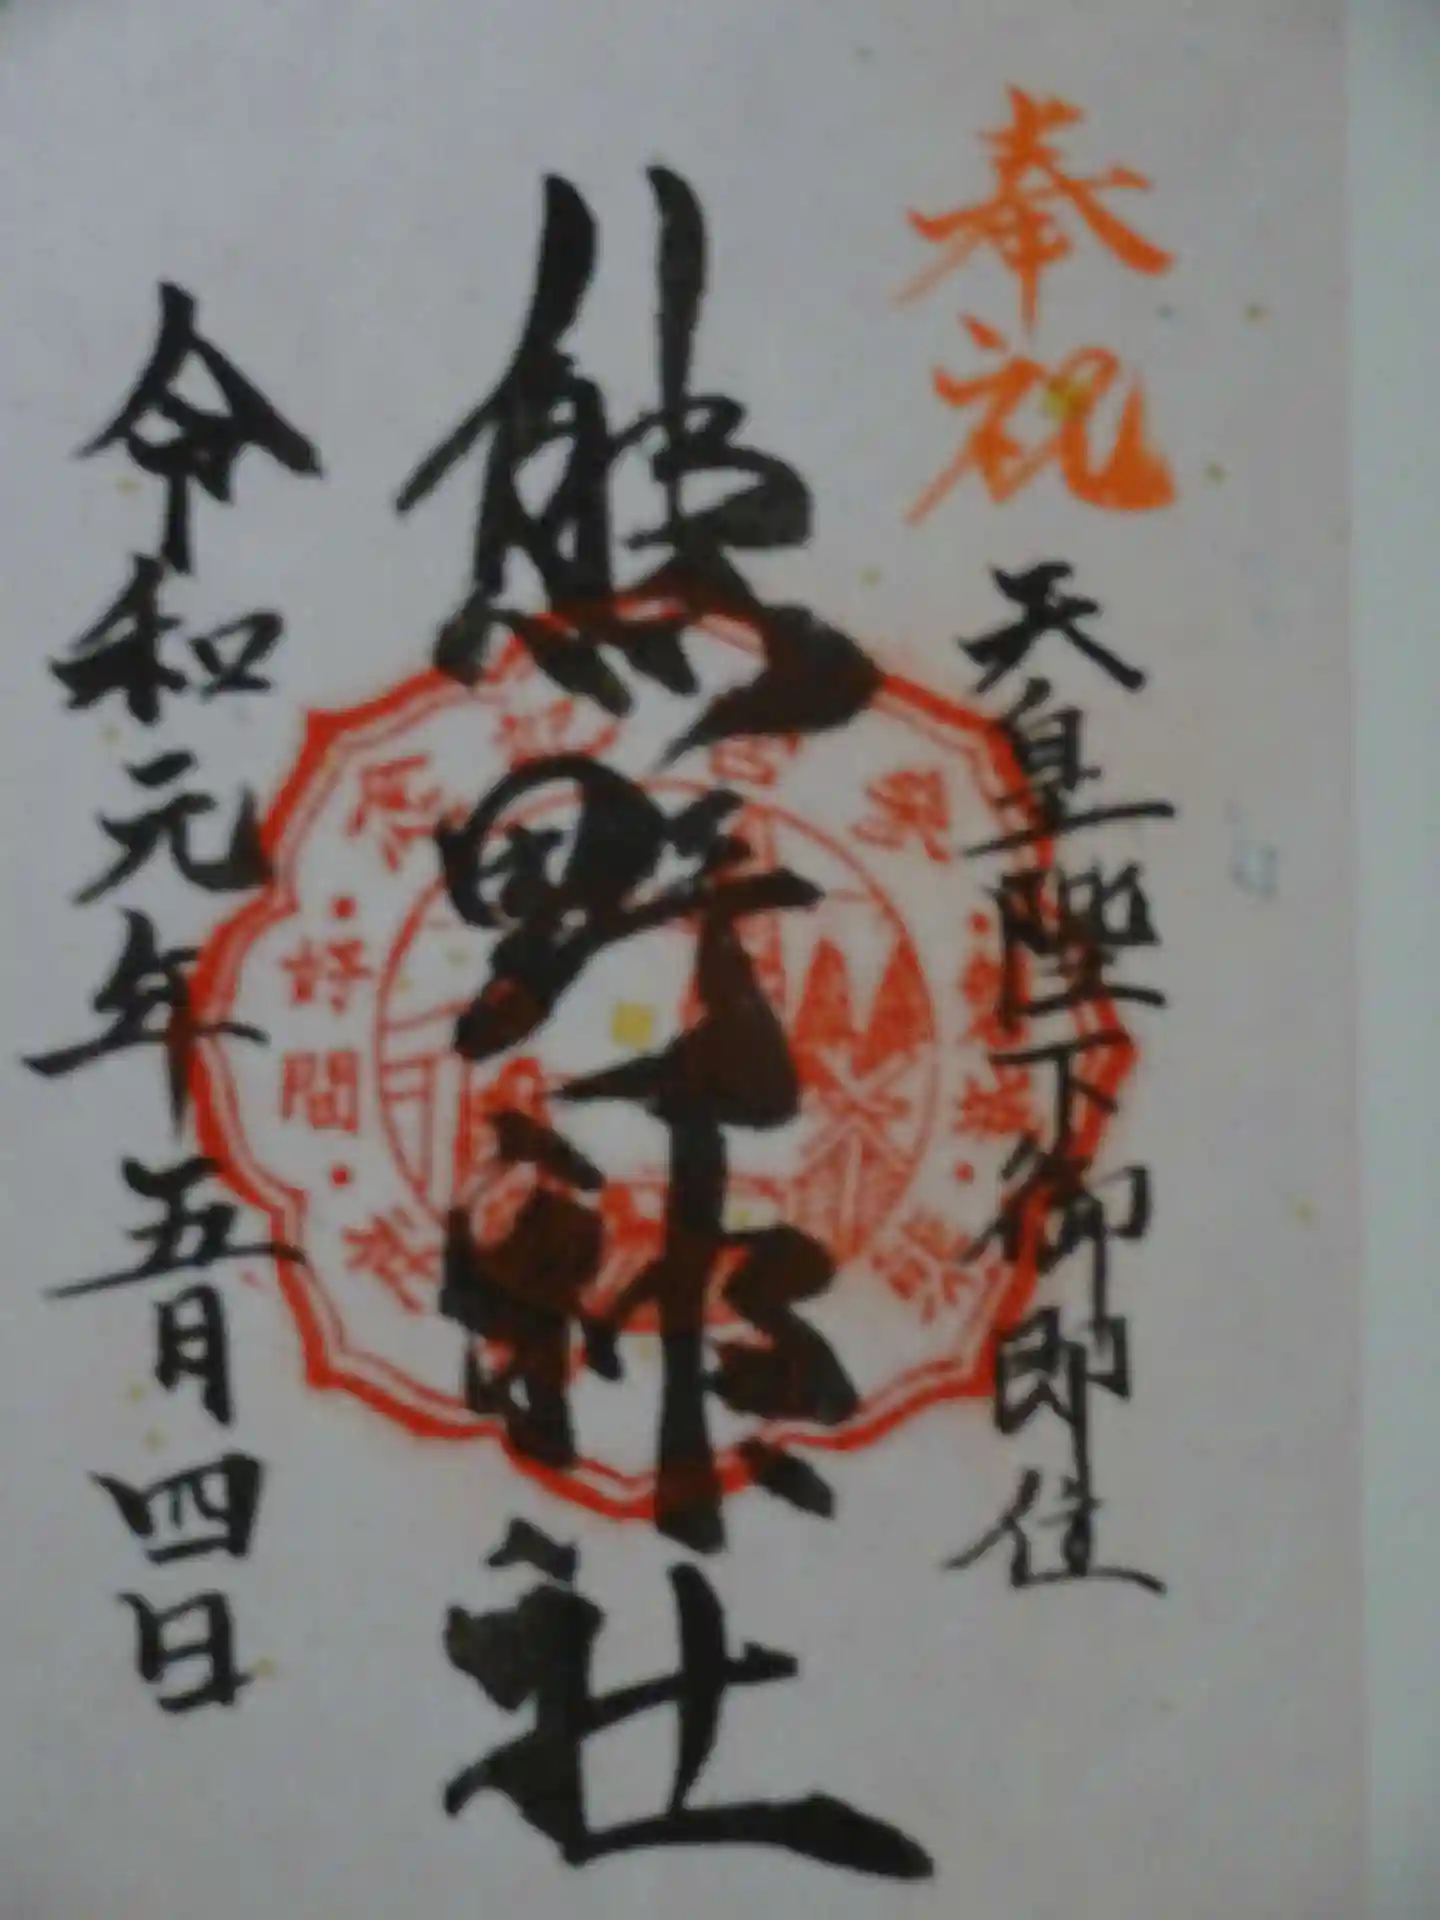 奉祝
天皇陛下御即位
熊野神社
令和元年五月四日
好間